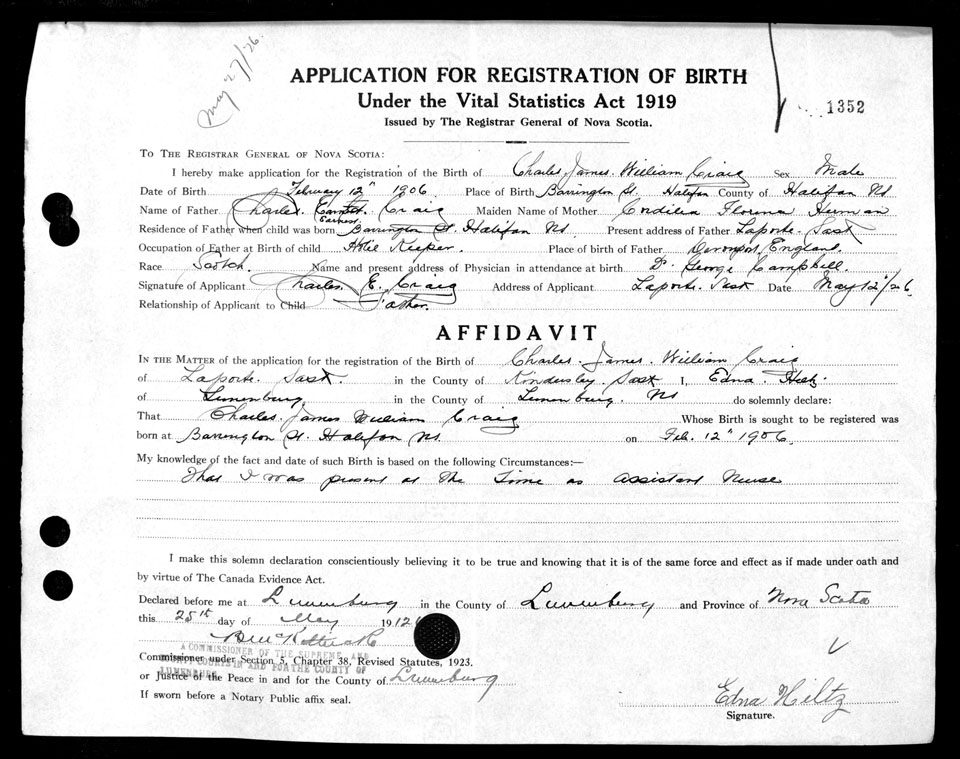 May 27/26.
APPLICATION FOR REGISTRATION OF BIRTH
Under the Vital Statistics Act 1919
1352
Issued by The Registrar General of Nova Scotia.
TO THE REGISTRAR GENERAL OF NOVA SCOTIA:
I hereby make application for the Registration of the Birth of Charles James William Craig Sex Male
Date of Birth February 12" 1906 Place of Birth Barrington St. Halifax County of Halifax NS
Name of Father Charles Earnest Craig Maiden Name of Mother Cordilia Florence Herman
Residence of Father when child was born Barrington St. Halifax NS. Present address of Father Laporte. Sask
Occupation of Father at Birth of child Hotel Keeper. Place of birth of Father Devonport, England.
Race Scotch. Name and present address of Physician in attendance at birth Dr. George Campbell.
Signature of Applicant Charles. E. Craig Address of Applicant Laporte. Sask Date May 12"/26
Relationship of Applicant to Child Father.
AFFIDAVIT
IN THE MATTER of the application for the registration of the Birth of Charles. James. William Craig
of Laporte. Sask. in the County of Kindersley. Sask I, Edna. Hiltz.
of Lunenburg in the County of Lunenburg. NS do solemnly declare:
That Charles. James William Craig Whose Birth is sought to be registered was
born at Barrington St. Halifax NS. on Feb. 12" 1906
My knowledge of the fact and date of such Birth is based on the following Circumstances:—
That I was present at the Time as Assistant Nurse
I make this solemn declaration conscientiously believing it to be true and knowing that it is of the same force and effect as if made under oath and
by virtue of The Canada Evidence Act.
Declared before me at Lunenburg in the County of Lunenburg and Province of Nova Scotia
this 25th day of May 1926
A COMMISSIONER OF THE SUPREME AND
Commissioner under Section 5, Chapter 38, Revised Statutes, 1923.
COUNTY COURTS IN AND FOR THE COUNTY OF
LUNENBURG
or Justice of the Peace in and for the County of Lunenburg
If sworn before a Notary Public affix seal.
Edna Hiltz
Signature.